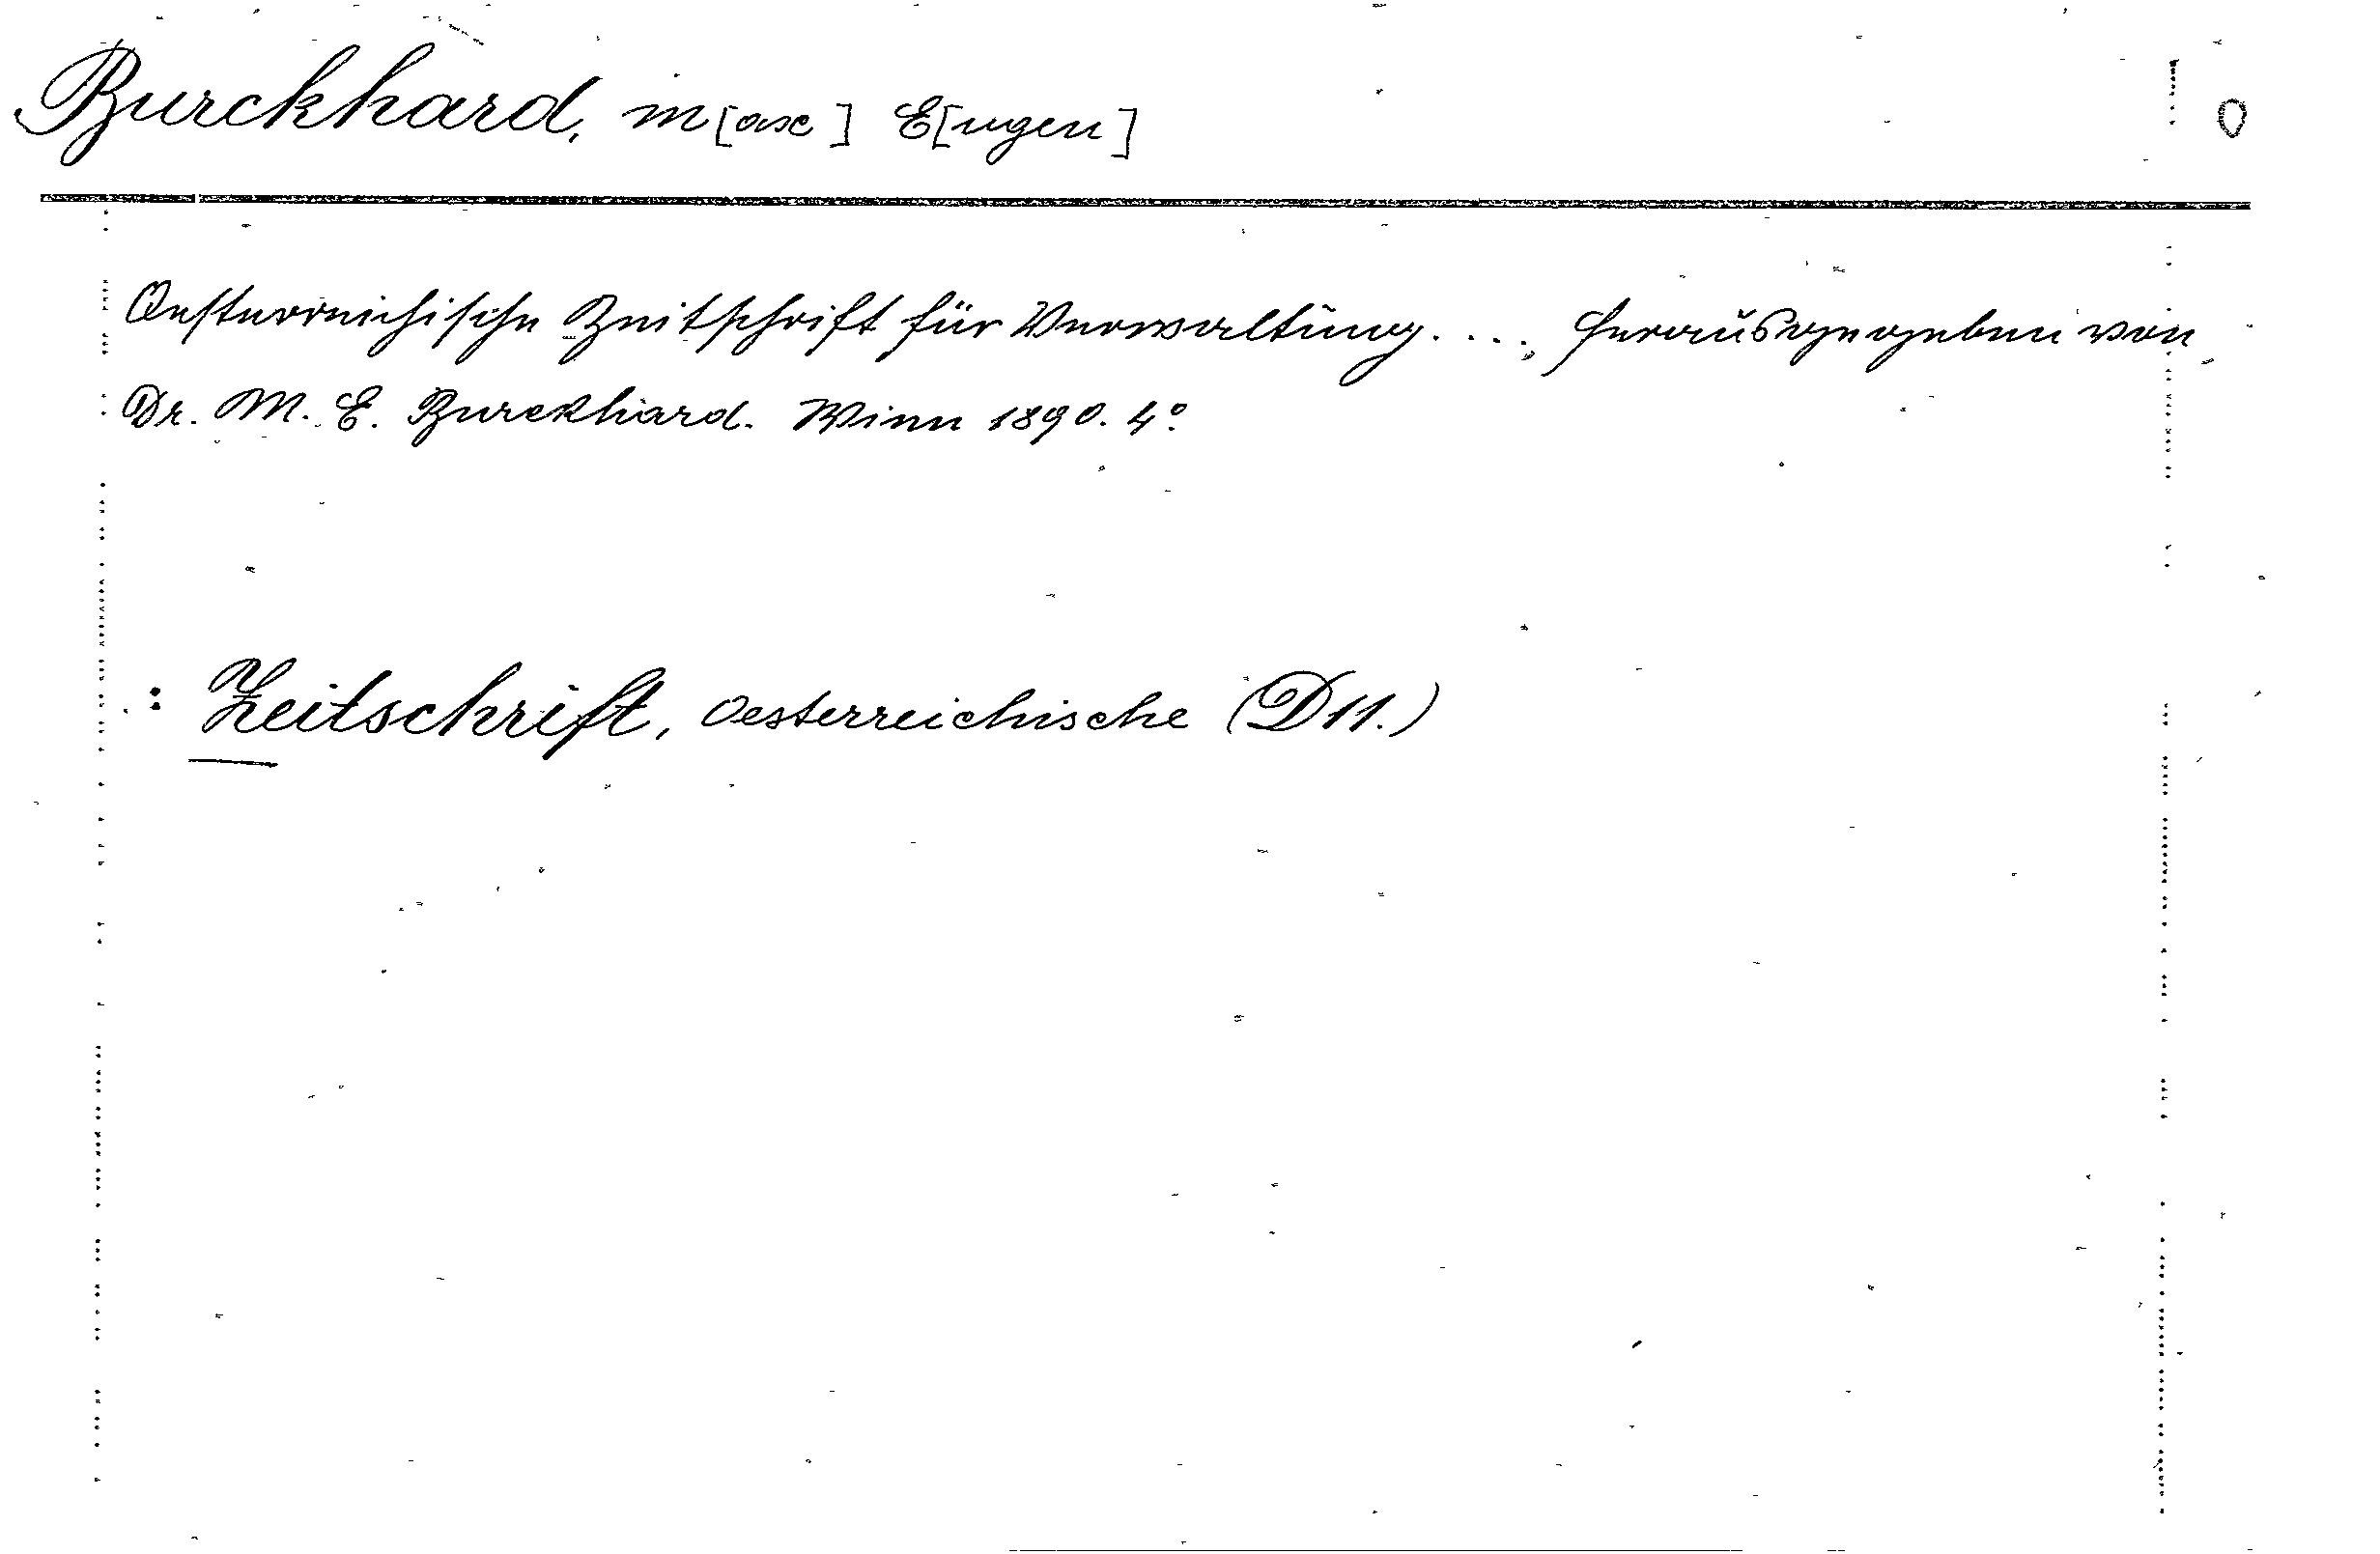 Burckhard, M[ax] E[ugen] 0
Oesterreichische Zeitschrift für Verwaltung. . . ., herausgegeben von
Dr. M. E. Burckhard. Wien 1890. 4°.
: Zeitschrift, Oesterreichische (D11.)